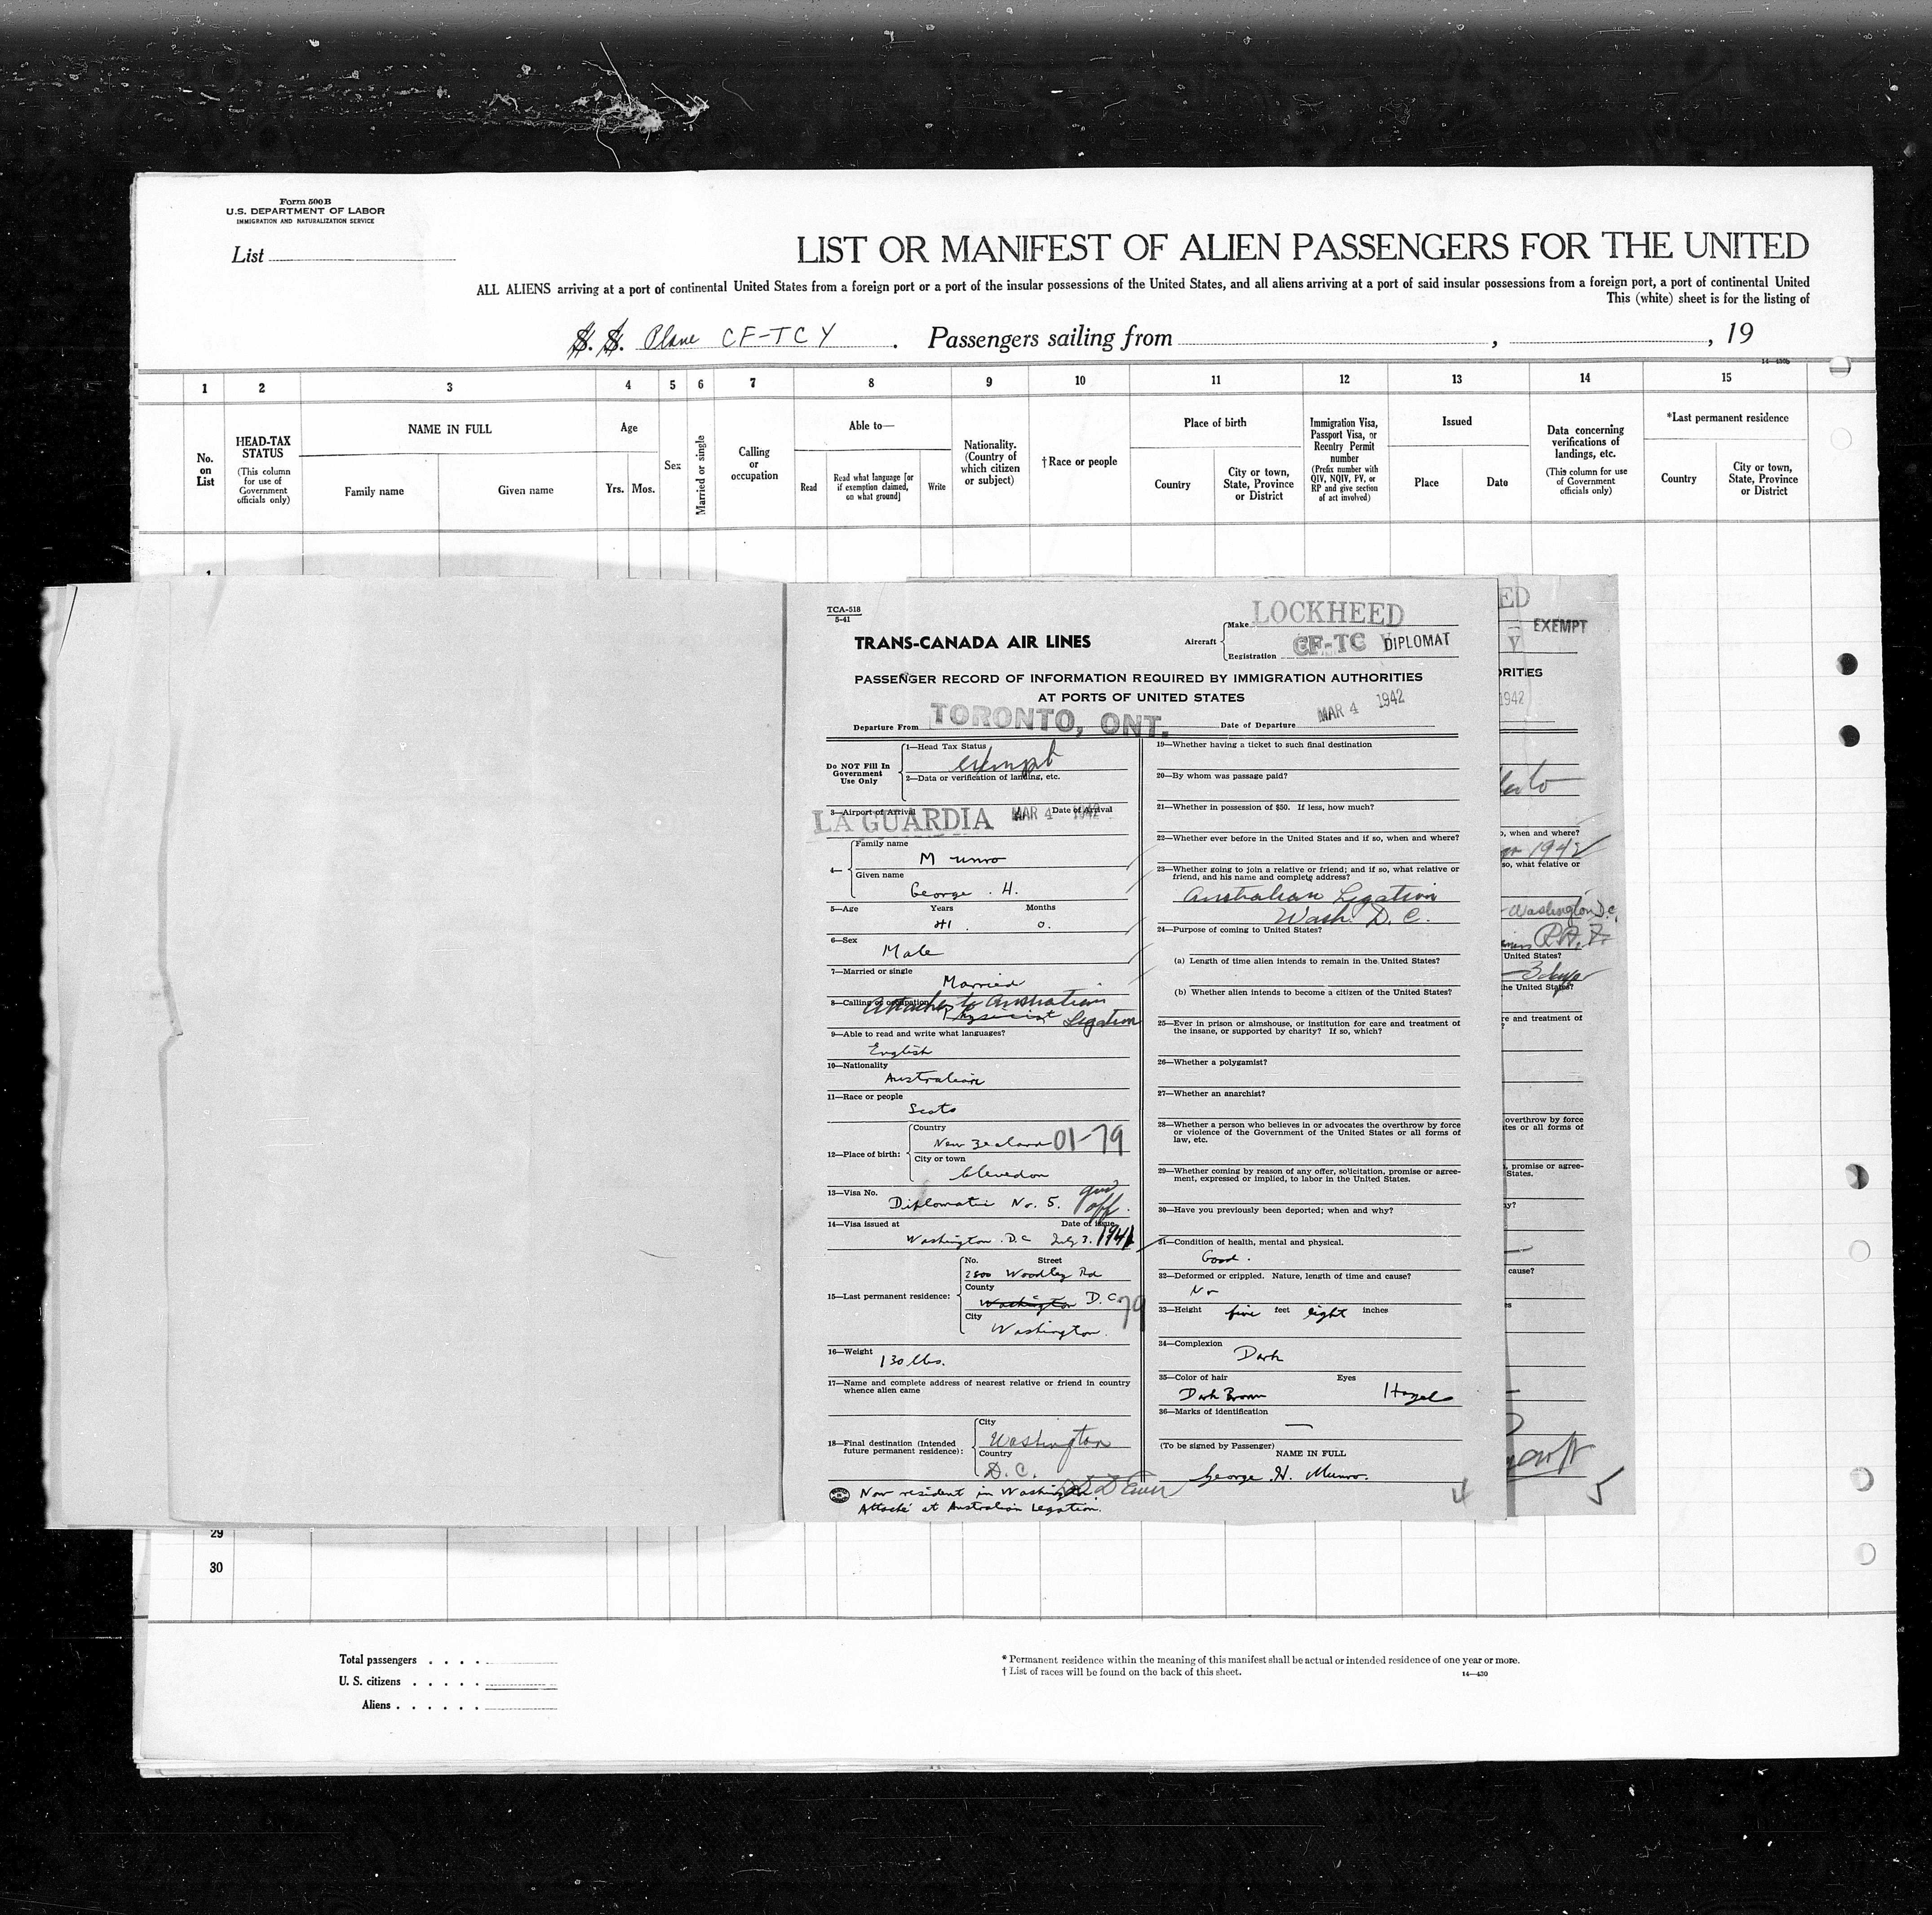 Form 500B
U.S. DEPARTMENT OF LABOR
IMMIGRATION AND NATURALIZATION SERVICE
List
LIST OR MANIFEST OF ALIEN PASSENGERS FOR THE UNITED
ALL ALIENS arriving at a port of continental United States from a foreign port or a port of the insular possessions of the United States, and all aliens arriving at a port of said insular possessions from a foreign port, a port of continental United
This (white) sheet is for the listing of
S. S. Plane CF-TCY . Passengers sailing from , , 19
1 2 3 4 5 6 7 8 9 10 11 12 13 14 15
No. on List
HEAD-TAX STATUS
(This column for use of Government officials only)
NAME IN FULL
Family name
Given name
Age
Yrs. Mos.
Sex
Married or single
Calling or occupation
Able to—
Read
Read what language [or if exemption claimed, on what ground]
Write
Nationality. (Country of which citizen or subject)
†Race or people
Place of birth
Country
City or town, State, Province or District
Immigration Visa, Passport Visa, or Reentry Permit number
(Prefix number with QIV, NQIV, PV, or RP and give section of act involved)
Issued
Place
Date
Data concerning verifications of landings, etc.
(This column for use of Government officials only)
*Last permanent residence
Country
City or town, State, Province or District
TCA-518
5-41
TRANS-CANADA AIR LINES
Aircraft
Make LOCKHEED
Registration CF-TC Y DIPLOMAT
PASSENGER RECORD OF INFORMATION REQUIRED BY IMMIGRATION AUTHORITIES
AT PORTS OF UNITED STATES
Departure From TORONTO, ONT. Date of Departure MAR 4 1942
Do NOT Fill In Government Use Only
1—Head Tax Status exempt
2—Data or verification of landing, etc.
3—Airport of Arrival Date of Arrival
LA GUARDIA MAR 4 1942
4—
Family name
Munro
Given name
George . H.
5—Age Years Months
41 . 0.
6—Sex
Male
7—Married or single
Married
8—Calling or occupation
Attache to Australian
Physicist Legation
9—Able to read and write what languages?
English
10—Nationality
Australian
11—Race or people
Scots
12—Place of birth:
Country
New Zealand 01-79
City or town
Clevedon
13—Visa No.
Diplomatic No. 5. gov off.
14—Visa issued at Date of issue
Washington D.C July 3. 1941
15—Last permanent residence:
No. Street
2500 Woodley Rd
County
Washington D.C. 79
City
Washington.
16—Weight
130 lbs.
17—Name and complete address of nearest relative or friend in country whence alien came
18—Final destination (Intended future permanent residence):
City
Washington
Country
D.C.
Now resident in Washington.
Attaché at Australian Legation.
19—Whether having a ticket to such final destination
20—By whom was passage paid?
21—Whether in possession of $50. If less, how much?
22—Whether ever before in the United States and if so, when and where?
23—Whether going to join a relative or friend; and if so, what relative or friend, and his name and complete address?
Australian Legation
Wash. D. C.
24—Purpose of coming to United States?
(a) Length of time alien intends to remain in the United States?
(b) Whether alien intends to become a citizen of the United States?
25—Ever in prison or almshouse, or institution for care and treatment of the insane, or supported by charity? If so, which?
26—Whether a polygamist?
27—Whether an anarchist?
28—Whether a person who believes in or advocates the overthrow by force or violence of the Government of the United States or all forms of law, etc.
29—Whether coming by reason of any offer, solicitation, promise or agreement, expressed or implied, to labor in the United States.
30—Have you previously been deported; when and why?
31—Condition of health, mental and physical.
Good.
32—Deformed or crippled. Nature, length of time and cause?
No
33—Height five feet eight inches
34—Complexion
Dark
35—Color of hair Eyes
Dark Brown Hazel
36—Marks of identification
—
(To be signed by Passenger)
NAME IN FULL
George H. Munro.
4
ED
EXEMPT
Y
ORITIES
1942
o, when and where?
1942
so, what relative or
Washington D.C.
R.A.F.
United States?
3 days
the United States?
re and treatment of
overthrow by force
tes or all forms of
, promise or agree-
States.
y?
cause?
es
5
29
30
Total passengers . . . .
U. S. citizens . . . . .
Aliens . . . . . .
* Permanent residence within the meaning of this manifest shall be actual or intended residence of one year or more.
† List of races will be found on the back of this sheet.
14—430